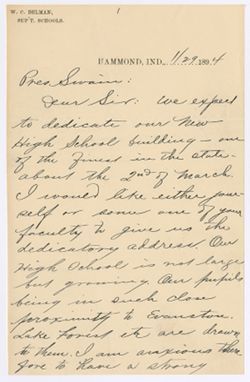 W. C. BELMAN,
SUP'T. SCHOOLS.
1
HAMMOND, IND., 1/29 1894
Pres. Swain:
Dear Sir: We expect
to dedicate our New
High School building - one
of the finest in the state -
about the 2nd of March.
I would like either your-
self or some one of your
faculty to give us the
dedicatory address. Our
High School is not large
but growing. Our pupils
being in such close
proximity to Evanston,
Lake Forest etc are drawn
to them. I am anxious there
fore to have a strong